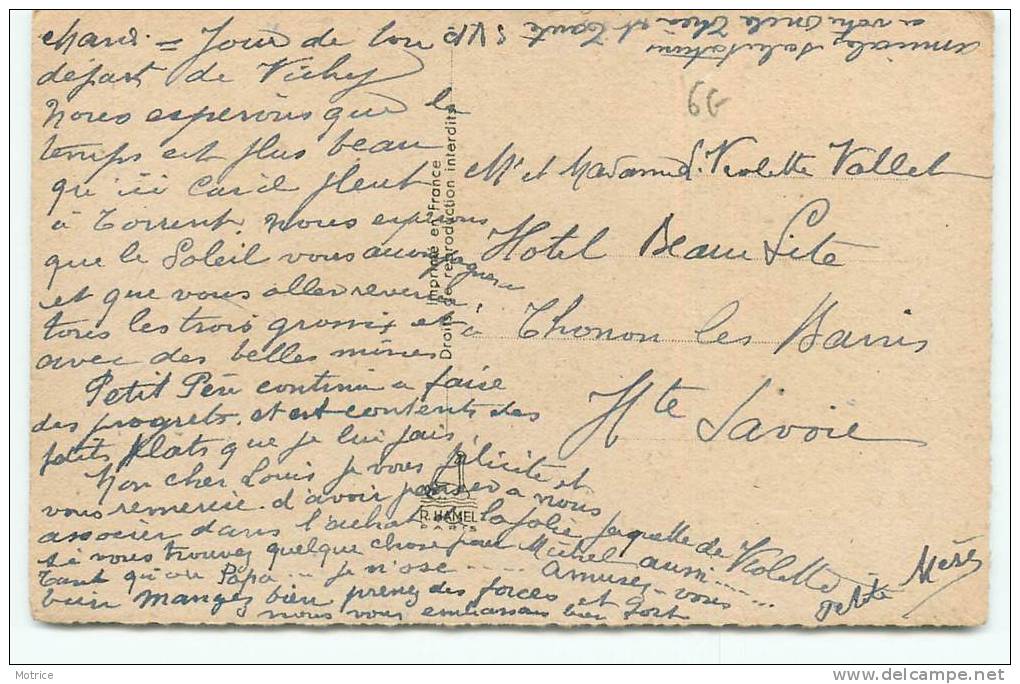 Mardi = Jour de son
départ de Vichy
Nous esperons que le
temps est plus beau
qu'ici car il pleut
à Torrent. Nous esperons
que le Soleil vous aurez
et que vous allez revenir
tous les trois grossis et
avec des belles mines
Petit Père continu a faire
des progrets. et est contents des
petits plats que je lui fais
Mon cher Louis je vous félicite et
vous remercie d'avoir penser a nous
associer dans l'achat de la jolie jaquette de Violette
si vous trouvez quelque chose pour Michel aussi ....
tant qu'au Papa ... je n'ose ..... Amusez-vous
bien mangez bien prenez des forces et ....
nous vous embrassons bien fort
petite Mère
amicales salutations
a votre Oncle Théo et Tante S.V.P
6G
Mr et Madame L. Violette Vallet
Hotel Beau Site
à Thonon les Bains
Hte Savoie
Imprimé en France
Droits de reproduction interdits
R. HAMEL
PARIS
Motrice
www.delcampe.net